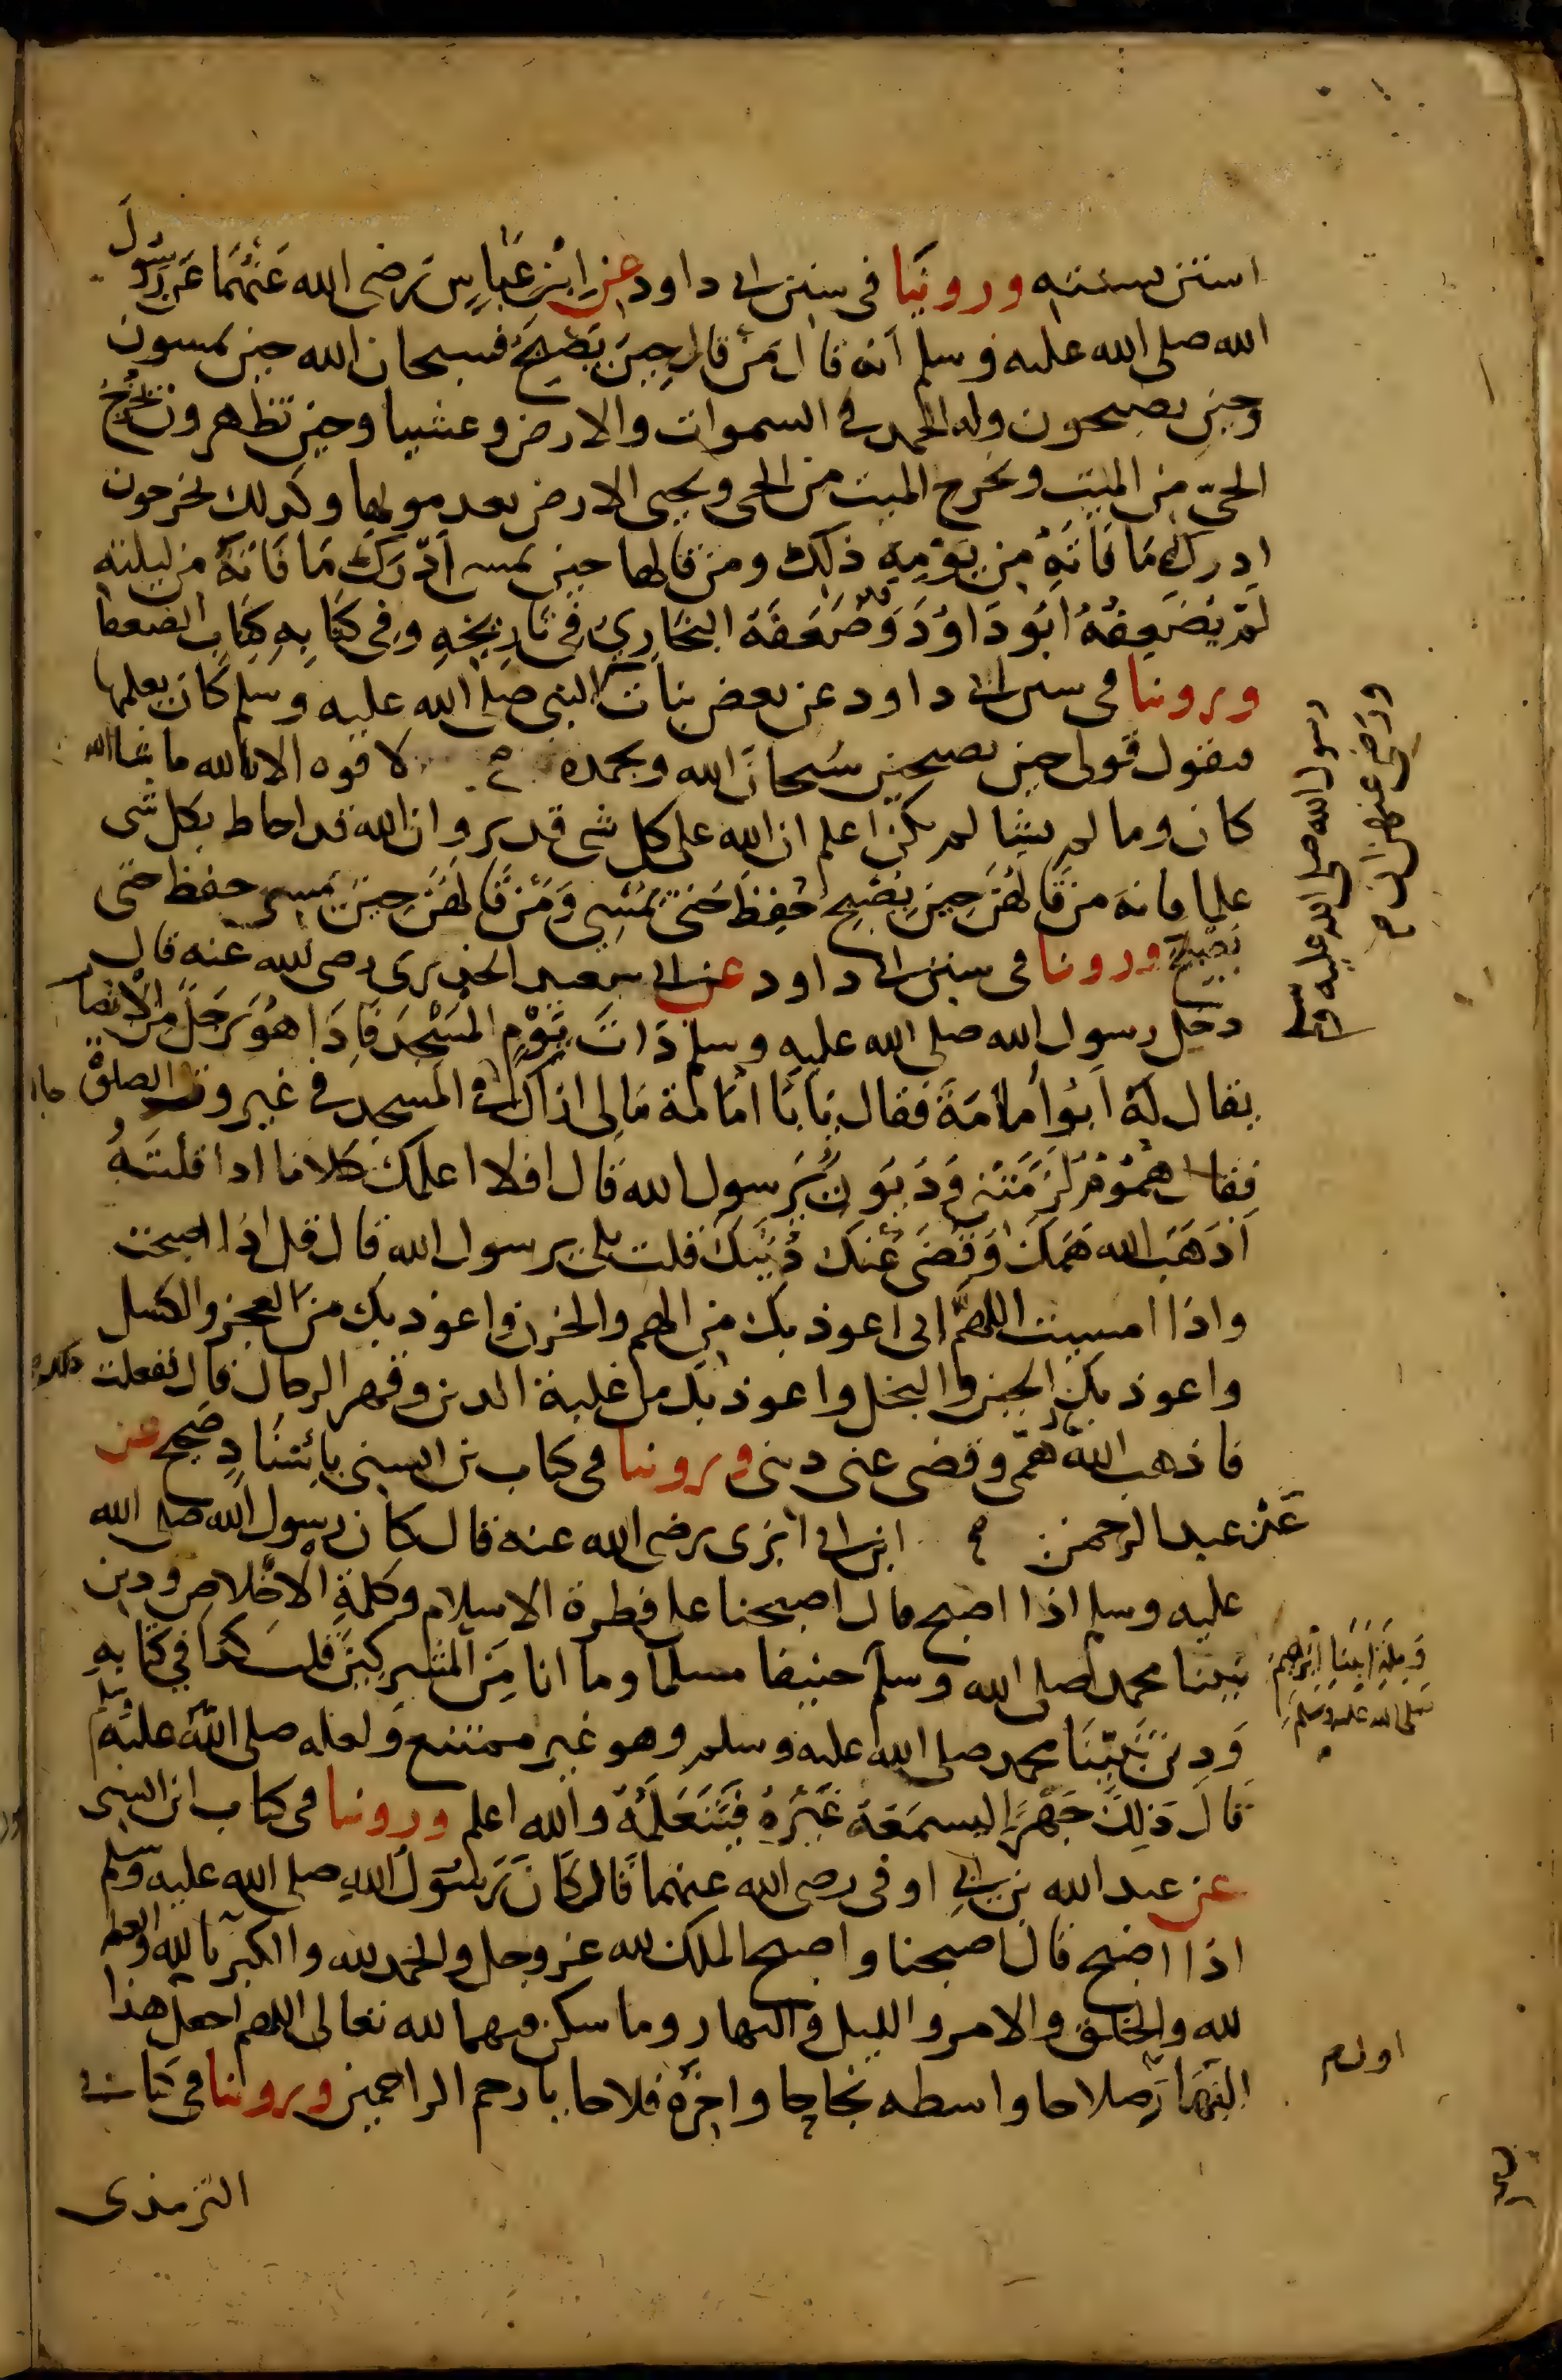 استن بسنته وروينا فى سنن ابى داود عن ابن عباس رضى الله عنهما عن رسول
الله صلى الله عليه وسلم انه قال من قال حين يصبح فسبحان الله حين تمسون
وحين تصبحون وله الحمد فى السموات والارض وعشيا وحين تظهرون يخرج
الحى من الميت ويخرج الميت من الحى ويحيى الارض بعد موتها وكذلك تخرجون
ادرك ما فاته من يومه ذلك ومن قالها حين يمسى ادرك ما فاته من ليلته
لم يضعفه ابو داود وقد ضعفه البخارى فى تاريخه وفى كتابه كتاب الضعفا
وروينا فى سنن ابى داود عن بعض بنات النبى صلى الله عليه وسلم كان يعلمها
فيقول قولى حين تصبحين سبحان الله وبحمده لا قوه الا بالله ما شا الله
كان وما لم يشا لم يكن اعلم ان الله على كل شى قدير وان الله قد احاط بكل شى
علما فانه من قالهن حين يصبح حفظ حتى يمسى ومن قالهن حين يمسى حفظ حتى
يصبح وروينا فى سنن ابى داود عن ابى سعيد الخدرى رضى الله عنه قال
دخل رسول الله صلى الله عليه وسلم ذات يوم المسجد فاذا هو برجل من الانصار
يقال له ابو امامة فقال يا با امامة مالى اراك فى المسجد فى غير وقت الصلوة
فقال هموم لزمتنى وديون يرسول الله قال افلا اعلمك كلاما اذا قلته
اذهب الله همك وقضى عنك دينك قلت بلى يرسول الله قال قل اذا اصبحت
واذا امسيت اللهم انى اعوذ بك من الهم والحزن واعوذ بك من العجز والكسل
واعوذ بك من الجبن والبخل واعوذ بك من غلبة الدين وقهر الرجال قال ففعلت ذلك
فاذهب الله همى وقضى عنى دينى وروينا فى كتاب بن السنى باسناد صحيح عن
عن عبد الرحمن ابن ابى ابزى رضى الله عنه قال كان رسول الله صلى الله
عليه وسلم اذا اصبح قال اصبحنا على فطرة الاسلام وكلمة الاخلاص ودين
نبينا محمد صلى الله وسلم حنيفا مسلما وما انا من المشركين قلت كذا فى كتابه
ودين نبينا محمد صلى الله عليه وسلم وهو غير ممتنع ولعله صلى الله عليه وسلم
قال ذلك جهرا ليسمعه غيره فيتعلمه والله اعلم وروينا فى كتاب ابن السنى
عن عبد الله بن ابى اوفى رضى الله عنهما قال كان رسول الله صلى الله عليه وسلم
اذا اصبح قال اصبحنا واصبح الملك لله عز وجل والحمد لله والكبريا لله والعظمة
لله والخلق والامر والليل والنهار وما سكن فيهما لله تعالى اللهم اجعل هذا
النهار صلاحا واسطه نجاحا واخره فلاحا يا ارحم الراحمين وروينا فى كتاب
الترمذى
رسول الله صلى الله عليه وسلم
ورضى عنهن ان
وملة ابينا ابرهيم
صلى الله عليه وسلم
اول